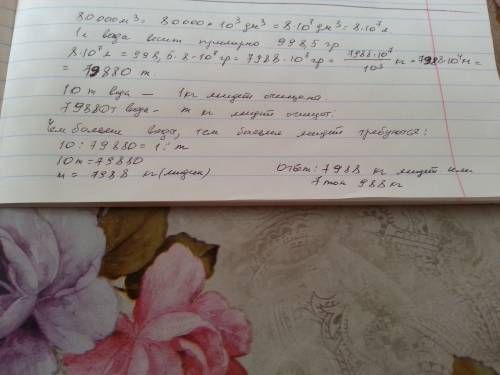 80000м³ = 80000 · 10³ дм³ = 8·10⁷ дм³ = 8·10⁷ л
1л вода весит примерно 998,5 гр
8·10⁷ л = 998,5 · 8·10⁷ гр = 7988·10⁷ гр = 7988·10⁷ / 10³ кг = 7988·10⁴ кг =
= 79880 т.
10 т вода — 1кг мидий очищают.
79880т вода — m кг мидий очищают.
Чем больше воды, тем больше мидий требуются:
10 : 79880 = 1 : m
10m = 79880
m = 7988 кг (мидии)
Ответ: 7988 кг мидий или
7 тон 988 кг